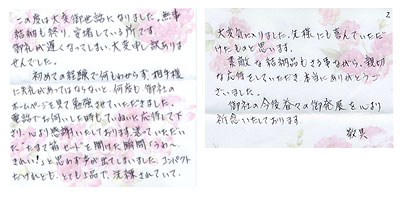 この度は大変御世話になりました。無事
結納も終り、安堵している所です。
御礼が遅くなってしまい、大変申し訳ありま
せんでした。
初めての経験で何もわからず、相手様
に失礼があってはならないと、何度も御社の
ホームページを見て勉強させていただきました。
電話でお伺いした時もていねいに応待して下さ
り、心より感謝いたしております。送っていただい
た“たまて箱セット”を開けた瞬間「うわ〜
きれい!」と思わず声が出てしまいました。コンパクト
だけれども、とても上品で、先様にされていて、
2
大変気に入りました。先様にも喜んでいただけ
たものと思います。
素敵な結納品もさる事ながら、親切
な応待をしていただき本当にありがとうご
ざいました。
御社の今後益々の御発展を心より
祈念いたしております。
敬具